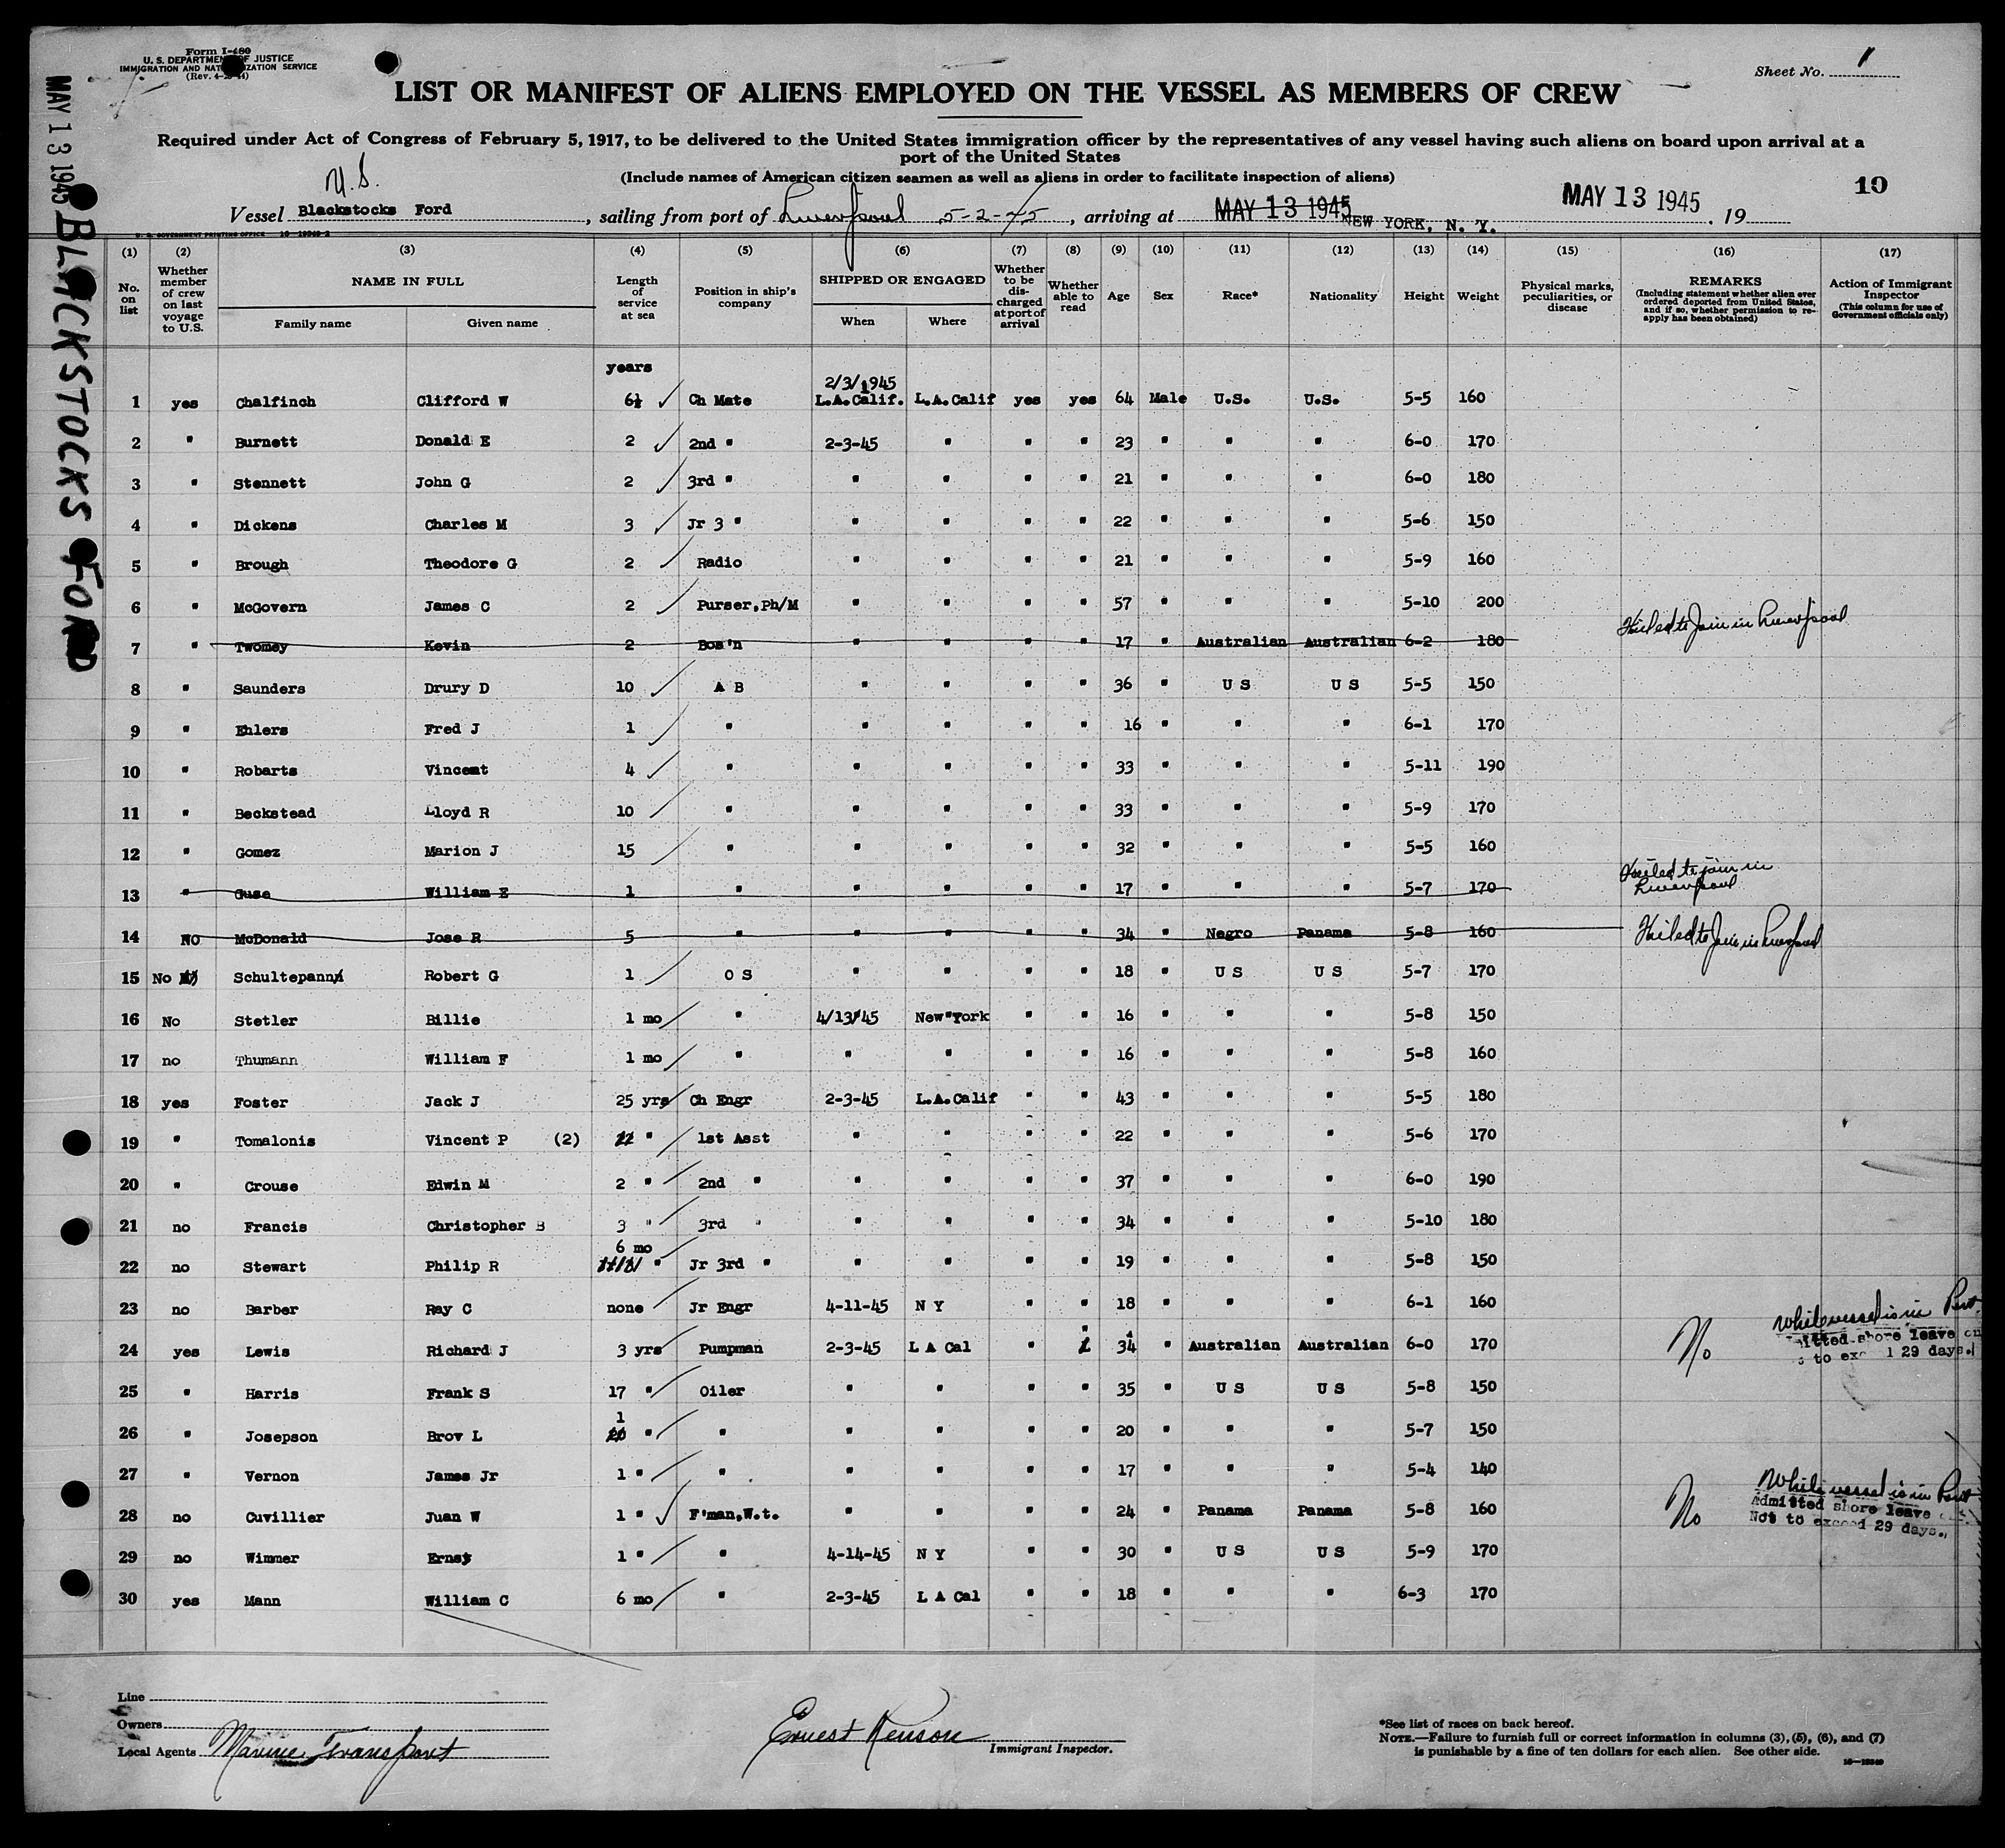 Form I-480
U. S. DEPARTMENT OF JUSTICE
IMMIGRATION AND NATURALIZATION SERVICE
(Rev. 4- -44)
Sheet No. 1
MAY 13 1945
BLACKSTOCKS FORD
LIST OR MANIFEST OF ALIENS EMPLOYED ON THE VESSEL AS MEMBERS OF CREW
Required under Act of Congress of February 5, 1917, to be delivered to the United States immigration officer by the representatives of any vessel having such aliens on board upon arrival at a
port of the United States
(Include names of American citizen seamen as well as aliens in order to facilitate inspection of aliens)
U.S.
10
Vessel Blackstocks Ford, sailing from port of Liverpool 5-2-45, arriving at MAY 13 1945 NEW YORK, N. Y. MAY 13 1945, 19
U. S. GOVERNMENT PRINTING OFFICE
(1) (2) (3) (4) (5) (6) (7) (8) (9) (10) (11) (12) (13) (14) (15) (16) (17)
No. on list
Whether member of crew on last voyage to U.S.
NAME IN FULL
Family name Given name
Length of service at sea
Position in ship's company
SHIPPED OR ENGAGED
When Where
Whether to be discharged at port of arrival
Whether able to read
Age Sex Race* Nationality Height Weight
Physical marks, peculiarities, or disease
REMARKS
(Including statement whether alien ever ordered deported from United States, and if so, whether permission to re-apply has been obtained)
Action of Immigrant Inspector
(This column for use of Government officials only)
years
2/3/1945
1 yes Chalfinch Clifford W 6½ Ch Mate L.A.Calif. L.A.Calif yes yes 64 Male U.S. U.S. 5-5 160
2 " Burnett Donald E 2 2nd " 2-3-45 " " " 23 " " " 6-0 170
3 " Stennett John G 2 3rd " " " " " 21 " " " 6-0 180
4 " Dickens Charles M 3 Jr 3 " " " " " 22 " " " 5-6 150
5 " Brough Theodore G 2 Radio " " " " 21 " " " 5-9 160
6 " McGovern James C 2 Purser,Ph/M " " " " 57 " " " 5-10 200
7 " Twomey Kevin 2 Bos'n " " " " 17 " Australian Australian 6-2 180 Failed to Join in Liverpool
8 " Saunders Drury D 10 A B " " " " 36 " U S U S 5-5 150
9 " Ehlers Fred J 1 " " " " " 16 " " " 6-1 170
10 " Robarts Vincent 4 " " " " " 33 " " " 5-11 190
11 " Beckstead Lloyd R 10 " " " " " 33 " " " 5-9 170
12 " Gomez Marion J 15 " " " " " 32 " " " 5-5 160
13 " Guse William E 1 " " " " " 17 " " " 5-7 170 Failed to join in Liverpool
14 NO McDonald Jose R 5 " " " " " 34 " Negro Panama 5-8 160 Failed to Join in Liverpool
15 No Schultepann Robert G 1 O S " " " " 18 " U S U S 5-7 170
16 No Stetler Billie 1 mo " 4/13/45 New York " " 16 " " " 5-8 150
17 no Thumann William F 1 mo " " " " " 16 " " " 5-8 160
18 yes Foster Jack J 25 yrs Ch Engr 2-3-45 L.A.Calif " " 43 " " " 5-5 180
19 " Tomalonis Vincent P (2) " 1st Asst " " " " 22 " " " 5-6 170
20 " Crouse Edwin M 2 " 2nd " " " " " 37 " " " 6-0 190
21 no Francis Christopher B 3 " 3rd " " " " " 34 " " " 5-10 180
6 mo
22 no Stewart Philip R " Jr 3rd " " " " " 19 " " " 5-8 150
23 no Barber Ray C none Jr Engr 4-11-45 N Y " " 18 " " " 6-1 160
24 yes Lewis Richard J 3 yrs Pumpman 2-3-45 L A Cal " " 34 " Australian Australian 6-0 170 No While vessel is in Port
mitted shore leave on
to exc 29 days.
25 " Harris Frank S 17 " Oiler " " " " 35 " U S U S 5-8 150
1
26 " Josepson Brov L 20 " " " " " " 20 " " " 5-7 150
27 " Vernon James Jr 1 " " " " " " 17 " " " 5-4 140
28 no Cuvillier Juan W 1 " F'man,W.t. " " " " 24 " Panama Panama 5-8 160 No While vessel is in Port
Admitted shore leave
Not to exceed 29 days.
29 no Wimmer Ernst 1 " " 4-14-45 N Y " " 30 " U S U S 5-9 170
30 yes Mann William C 6 mo " 2-3-45 L A Cal " " 18 " " " 6-3 170
Line
Owners
Local Agents Marine Transport
Ernest Kenson
Immigrant Inspector.
*See list of races on back hereof.
NOTE.—Failure to furnish full or correct information in columns (3), (5), (6), and (7)
is punishable by a fine of ten dollars for each alien. See other side.